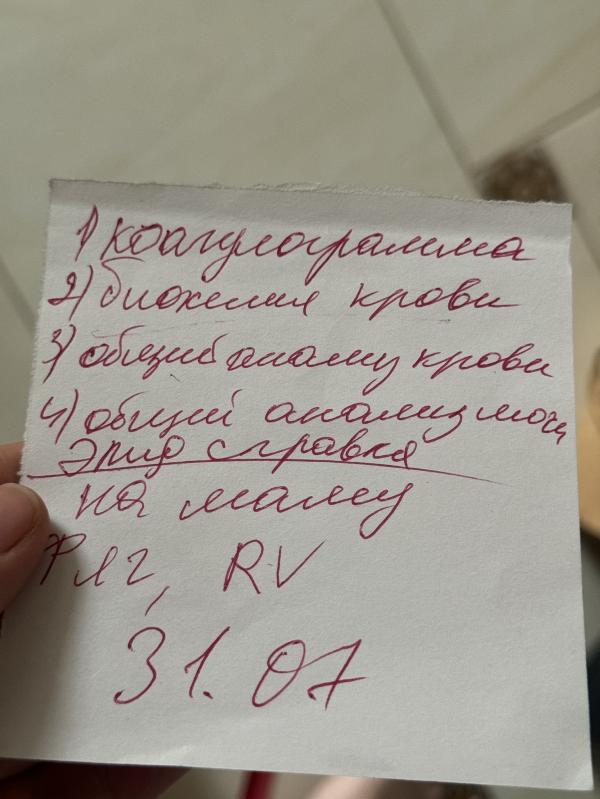 1) коагулограмма
2) биохимия крови
3) общий анализ крови
4) общий анализ мочи
Эпид справка
на маму
Фляг, RV
31.07